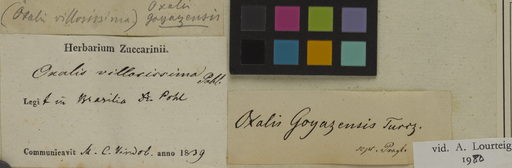 (Oxalis villosissima) Oxalis
goyazensis
Herbarium Zuccarinii.
Oxalis villosissima Pohl.
Legit in Brasilia Dr Pohl
Communicavit M. C. Vindob. anno 1839
Oxalis Goyazensis Turcz.
vid. A. Lourteig
1980